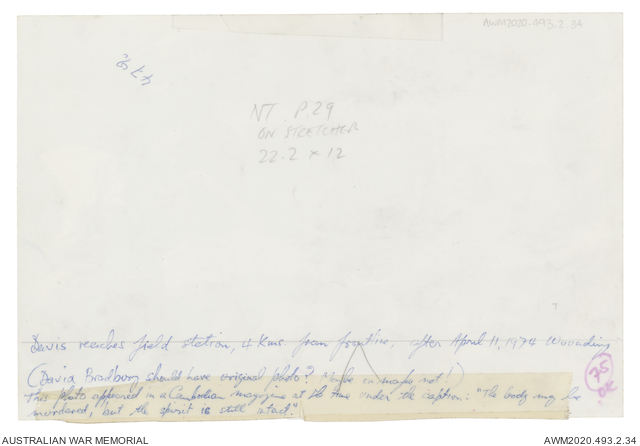 AWM2020.493.2.34
NT P.29
ON STRETCHER
22.2 x 12
Davis reaches field station, 4 Kms. from frontline, after April 11, 1974 Wounding
(David Bradbury should have original photo? Maybe not!)
75
OK
This photo appeared in a Cambodian magazine at the time under the caption: "The body may be
murdered, but the spirit is still intact."
AUSTRALIAN WAR MEMORIAL
AWM2020.493.2.34